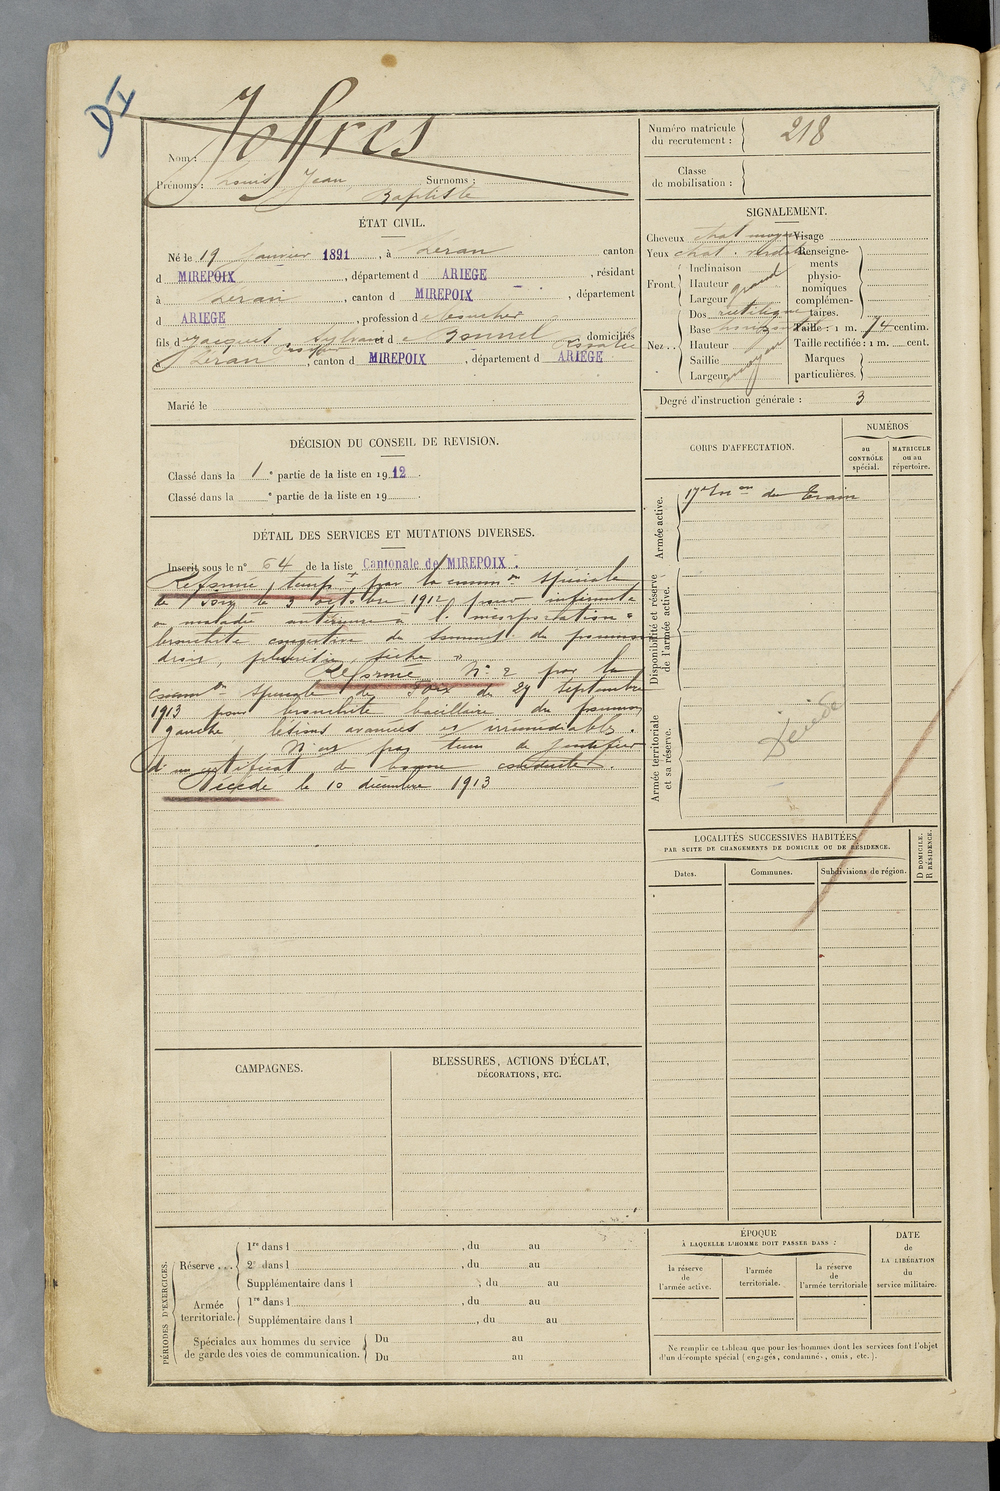 D4
Joffres
Nom :
Prénoms : Louis Jean Surnoms :
Baptiste
ÉTAT CIVIL.
Né le 19 Janvier 1891, à Léran canton
d MIREPOIX, département d ARIEGE, résidant
à Léran, canton d MIREPOIX, département
d ARIEGE, profession d
fils d Jacques, Sylvain et d Bonnel Rosalie domiciliés
à Léran, canton d MIREPOIX, département d ARIEGE
Marié le
DÉCISION DU CONSEIL DE REVISION.
Classé dans la 1e partie de la liste en 1912.
Classé dans la e partie de la liste en 19
DÉTAIL DES SERVICES ET MUTATIONS DIVERSES.
Inscrit sous le n° 64 de la liste Cantonale de MIREPOIX.
Réformé tempre par la common spéciale
de Foix le 3 octobre 1912 pour infirmité
ou maladie antérieure à l'incorporation :
bronchite congestive du sommet du poumon
droit, pleurésie sèche.
Réformé N° 2 par la
common spéciale de Foix du 29 septembre
1913 pour bronchite bacillaire du poumon
gauche lésions avancées et irrémédiables.
N'est pas tenu de justifier
d'un certificat de bonne conduite.
Décédé le 10 décembre 1913
CAMPAGNES.
BLESSURES, ACTIONS D'ÉCLAT,
DÉCORATIONS, ETC.
PÉRIODES D'EXERCICES.
Réserve ...
1re dans l , du au
2e dans l , du au
Supplémentaire dans l , du au
Armée territoriale.
1re dans l , du au
Supplémentaire dans l , du au
Spéciales aux hommes du service
de garde des voies de communication.
Du au
Du au
Numéro matricule
du recrutement : 218
Classe
de mobilisation :
SIGNALEMENT.
Cheveux chat moyen Visage
Yeux chat. verdâtre
Front.
Inclinaison
Hauteur grand
Largeur
Nez..
Dos rectiligne
Base horizont
Hauteur
Saillie moyen
Largeur
Renseignements
physionomiques
complémentaires.
Taille : 1 m. 74 centim.
Taille rectifiée : 1 m. cent.
Marques
particulières.
Degré d'instruction générale : 3
CORPS D'AFFECTATION.
NUMÉROS
au
CONTRÔLE
spécial.
MATRICULE
ou au
répertoire.
Armée active.
17e Escon du Train
Disponibilité et réserve
de l'armée active.
Armée territoriale
et sa réserve.
Décédé
LOCALITÉS SUCCESSIVES HABITÉES
PAR SUITE DE CHANGEMENTS DE DOMICILE OU DE RÉSIDENCE.
Dates.
Communes.
Subdivisions de région.
D DOMICILE.
R RÉSIDENCE.
ÉPOQUE
À LAQUELLE L'HOMME DOIT PASSER DANS :
la réserve
de
l'armée active.
l'armée
territoriale.
la réserve
de
l'armée territoriale
DATE
de
LA LIBÉRATION
du
service militaire.
Ne remplir ce tableau que pour les hommes dont les services font l'objet
d'un décompte spécial (engagés, condamnés, omis, etc.).